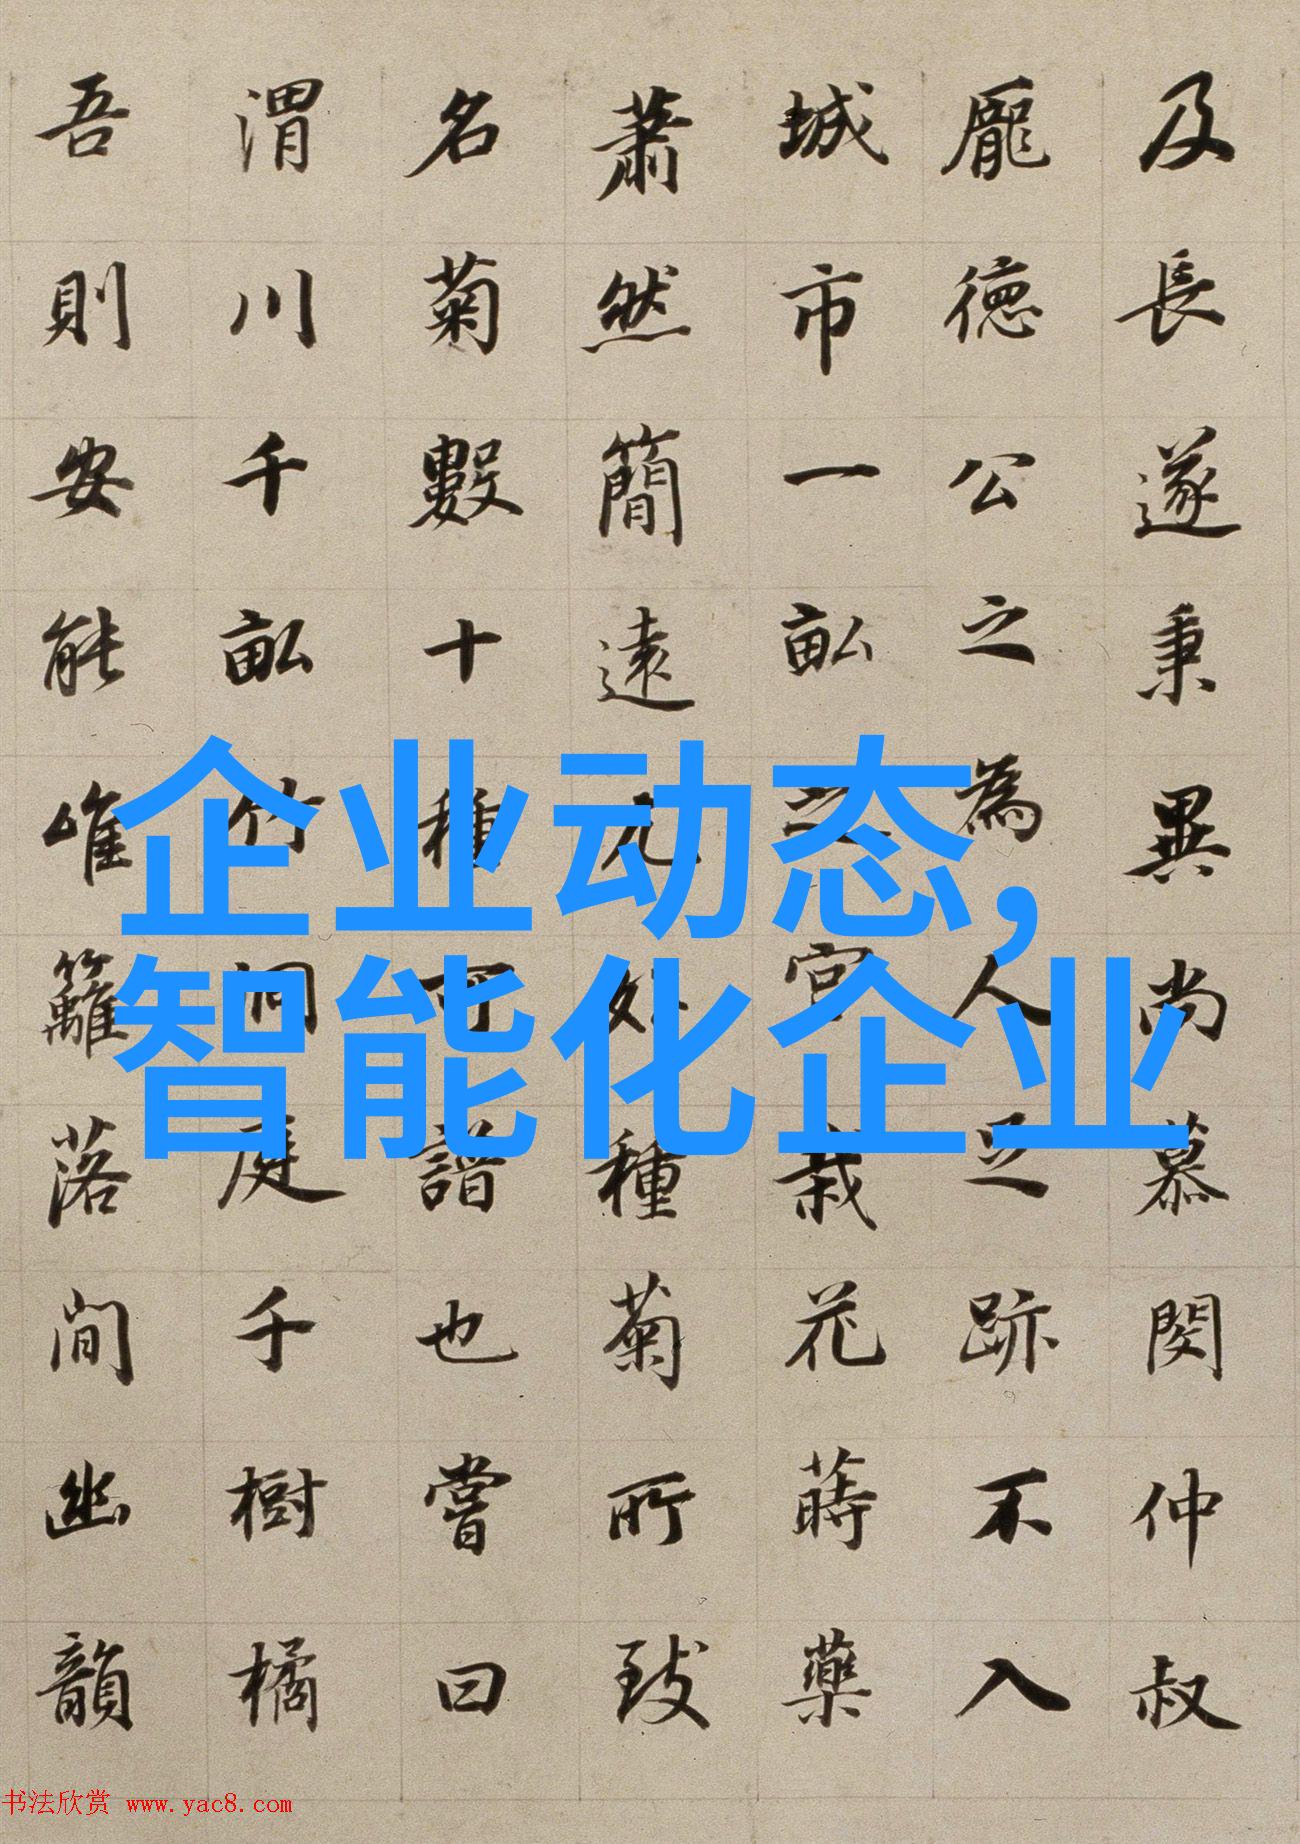 及長遂秉異尚慕閔仲叔
龐德公之為人足跡不入
城市一畝之宮栽花蒔藥
蕭然簡遠尤好種菊所致
名菊數十種可譜也嘗曰
渭川千畝竹洞庭千樹橘
吾則安能唯籬落間幽韻
企业动态,
智能化企业
书法欣赏 www.yac8.com